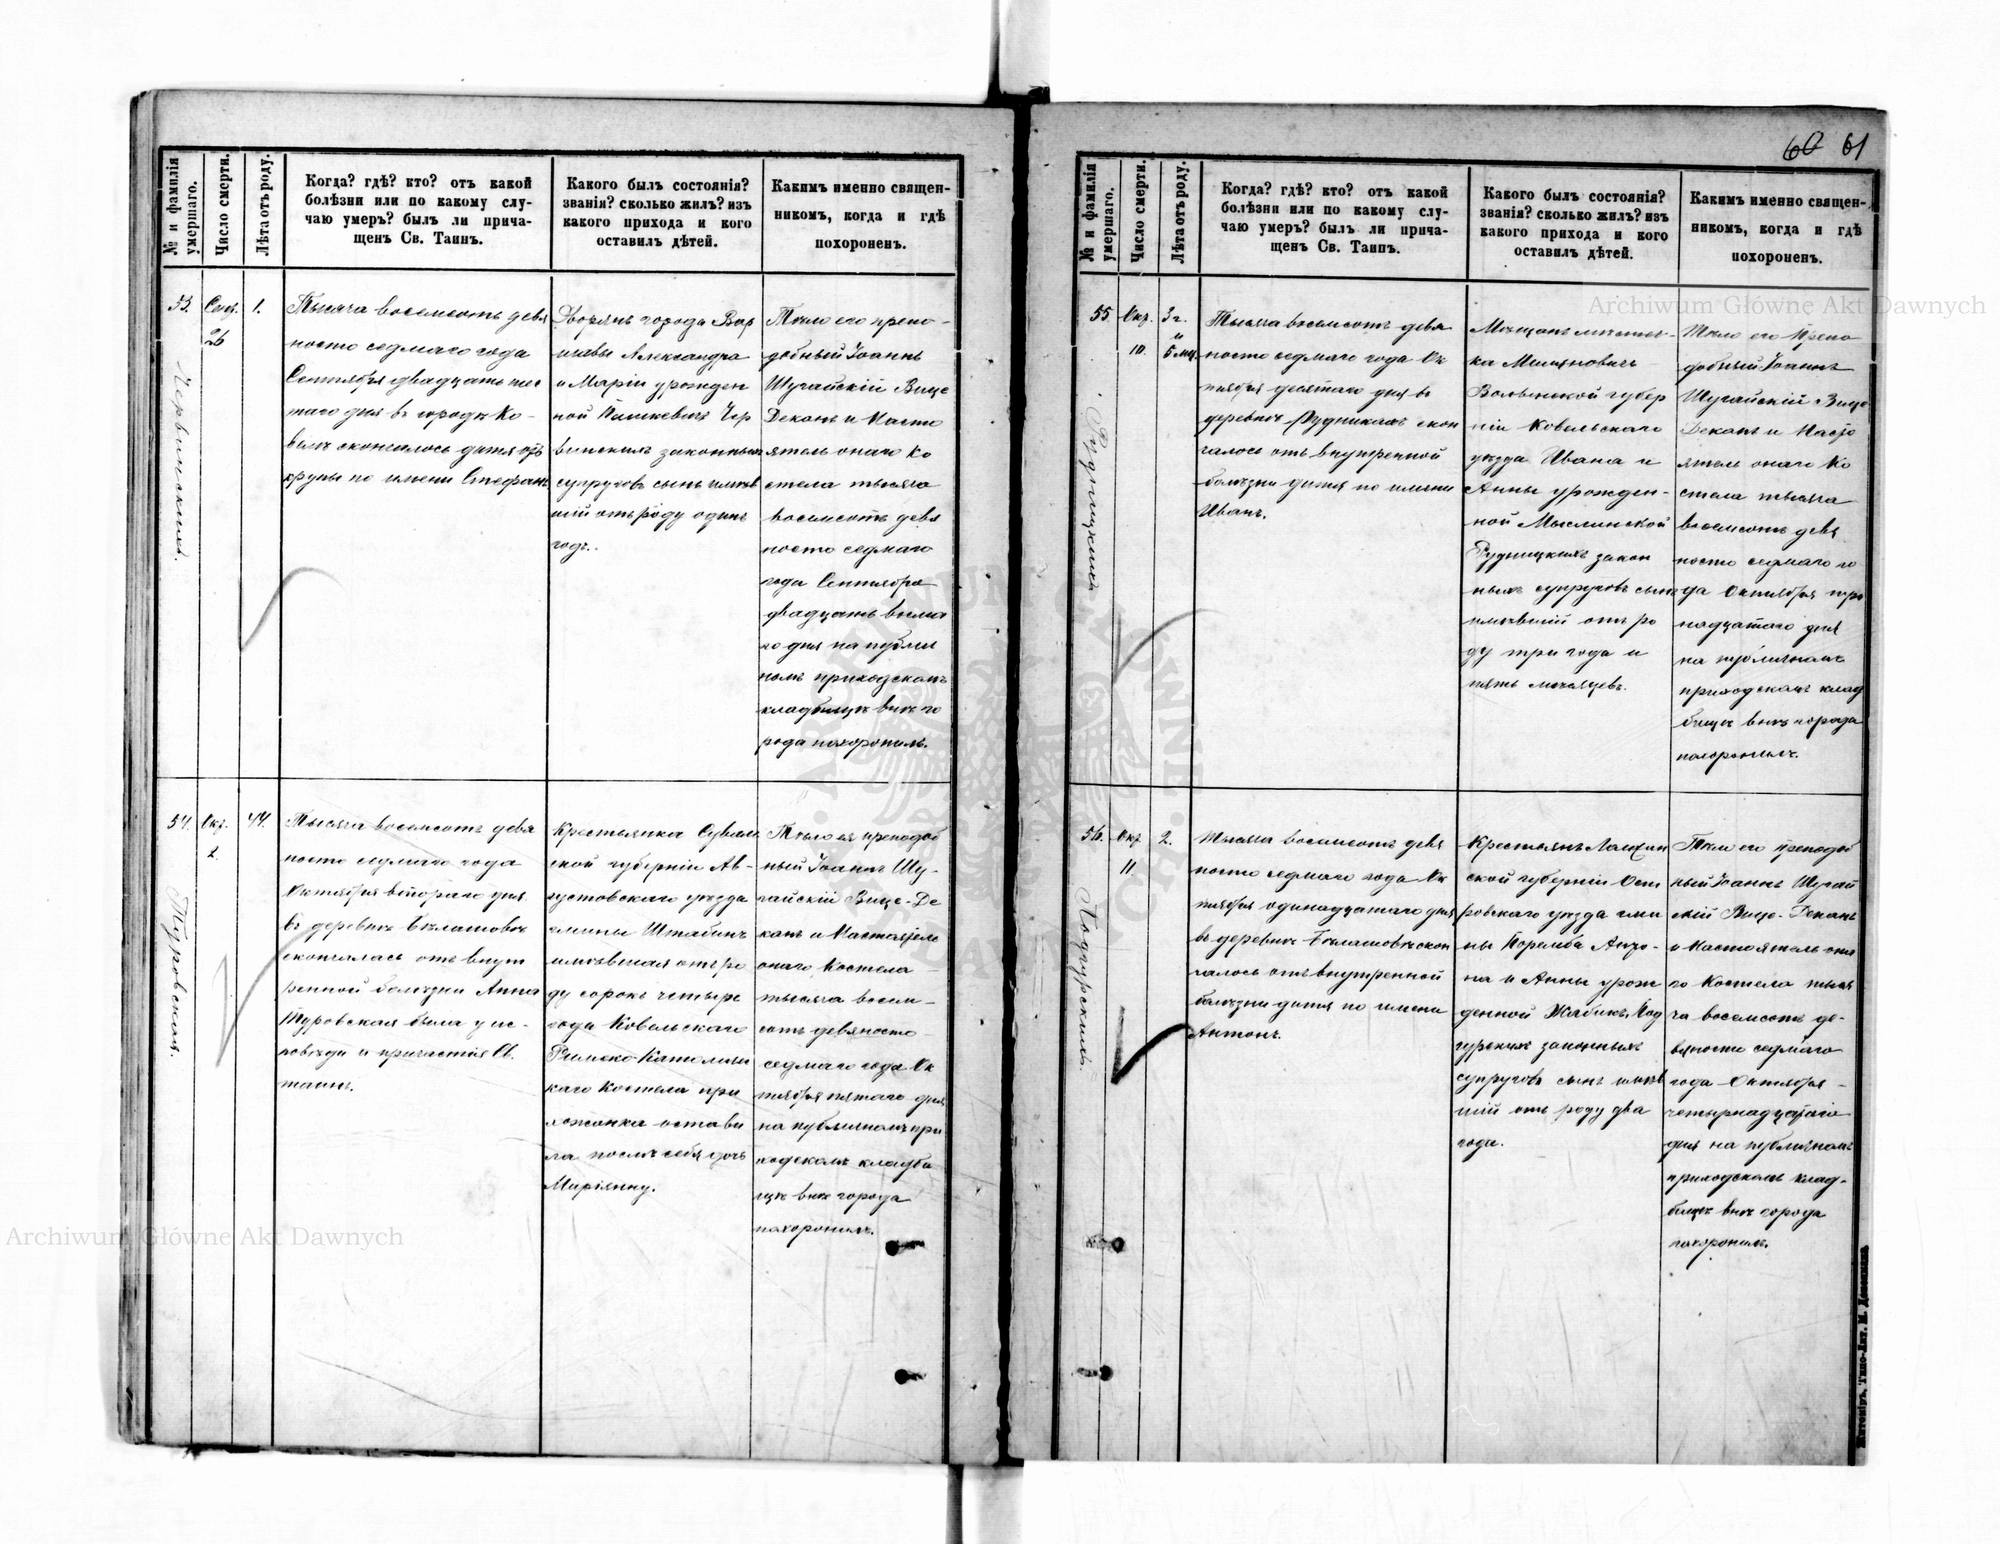 60 61
№ и фамилія умершаго.
Число смерти.
Лѣта отъ роду.
Когда? гдѣ? кто? отъ какой
болѣзни или по какому слу-
чаю умеръ? былъ ли прича-
щенъ Св. Таинъ.
Какого былъ состоянія?
званія? сколько жилъ? изъ
какого прихода и кого
оставилъ дѣтей.
Какимъ именно священ-
никомъ, когда и гдѣ
похороненъ.
53.
Сент.
26
1.
Червинскій.
Тысяча восемсотъ девя
носто седмаго года
Сентября двадцать шес
таго дня въ городѣ Ко-
велѣ скончалось дитя отъ
крупы по имени Стефанъ
Дворянъ города Вар
шавы Александра
и Маріи урожден
ной Пашкевичъ Чер
винскихъ законныхъ
супруговъ сынъ имѣв
шій отъ роду одинъ
годъ.
Тѣло его препо-
добный Іоаннъ
Шугайскій Вице
Деканъ и Насто
ятель онаго Ко
стела тысяча
восемсотъ девя
носто седмаго
года Сентября
двадцать восма
го дня на публич
номъ приходскомъ
кладбищѣ внѣ го
рода похоронилъ.
54.
Окт.
2.
44.
Туровская.
Тысяча восемсотъ девя
носто седмаго года
Октября втораго дня
въ деревнѣ Бѣлашовѣ
скончалась отъ внут
ренной болѣзни Анна
Туровская была у ис-
повѣди и причастія Св.
таинъ.
Крестьянка Сувалк
ской губерніи Ав-
густовскаго уѣзда
гмины Штабинъ
имѣвшая отъ ро
ду сорокъ четыре
года Ковельскаго
Римско-Католичес
каго Костела при
хожанка остави
ла послѣ себя дочь
Маріянну.
Тѣло ея преподоб
ный Іоаннъ Шу-
гайскій Вице-Де
канъ и Настоятель
онаго Костела
тысяча восем-
сотъ девяносто
седмаго года Ок
тября пятаго дня
на публичномъ при
ходскомъ кладби
щѣ внѣ города
похоронилъ.
№ и фамилія умершаго.
Число смерти.
Лѣта отъ роду.
Когда? гдѣ? кто? отъ какой
болѣзни или по какому слу-
чаю умеръ? былъ ли прича-
щенъ Св. Таинъ.
Какого былъ состоянія?
званія? сколько жилъ? изъ
какого прихода и кого
оставилъ дѣтей.
Какимъ именно священ-
никомъ, когда и гдѣ
похороненъ.
55
Окт.
10.
3 г.
и
5 мц.
Рудницкій
Тысяча восемсотъ девя
носто седмаго года Ок
тября десятаго дня въ
деревнѣ Рудникахъ скон
чалось отъ внутренной
болѣзни дитя по имени
Иванъ.
Мѣщанъ мѣстеч-
ка Миляновичъ
Волынской губер
ніи Ковельскаго
уѣзда Ивана и
Анны урожден-
ной Мыслинской
Рудницкихъ закон
ныхъ супруговъ сынъ
имѣвшій отъ ро
ду три года и
пять мѣсяцевъ.
Тѣло его Препо
добный Іоаннъ
Шугайскій Вице
Деканъ и Насто
ятель онаго Ко
стела тысяча
восемсотъ девя
носто седмаго го
да Октября три
надцатаго дня
на публичномъ
приходскомъ клад
бищѣ внѣ города
похоронилъ.
56.
Окт
11.
2.
Подгурскій.
Тысяча восемсотъ девя
носто седмаго года Ок
тября одинадцатаго дня
въ деревнѣ Бѣлашовѣ скон
чалось отъ внутренной
болѣзни дитя по имени
Антонъ.
Крестьянъ Ломжин
ской губерніи Ост
ровскаго уѣзда гми
ны Поремба Анто-
на и Анны урож
денной Жабикъ Под
гурскихъ законныхъ
супруговъ сынъ имѣв
шій отъ роду два
года.
Тѣло его преподоб
ный Іоаннъ Шугай
скій Вице-Деканъ
и Настоятель она
го Костела тыся
ча восемсотъ де-
вяносто седмаго
года Октября-
четырнадцатаго
дня на публичномъ
приходскомъ клад-
бищѣ внѣ города
похоронилъ.
Житоміръ, Типо-Лит. М. Дененмана.
Archiwum Główne Akt Dawnych
Archiwum Główne Akt Dawnych
ARCHIWUM GŁÓWNE AKT DAWNYCH